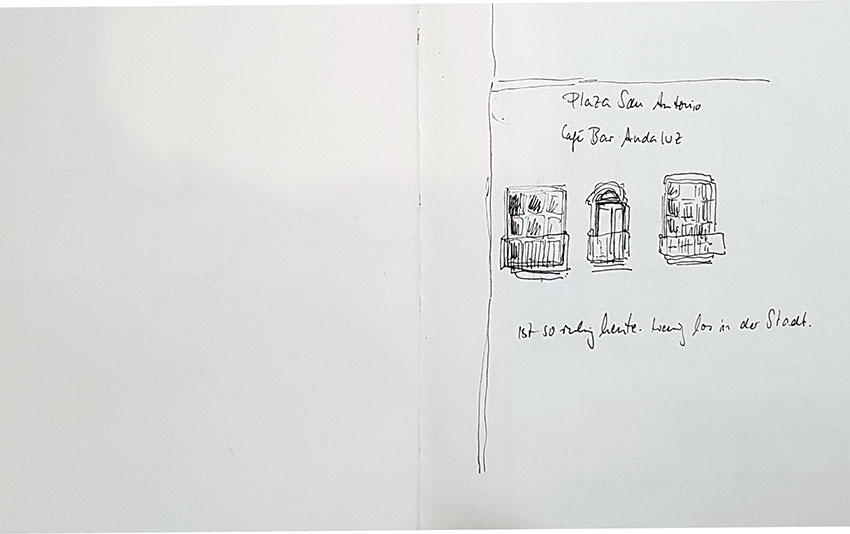 Plaza San Antonio
Café Bar Andaluz
Ist so ruhig heute. Wenig los in der Stadt.